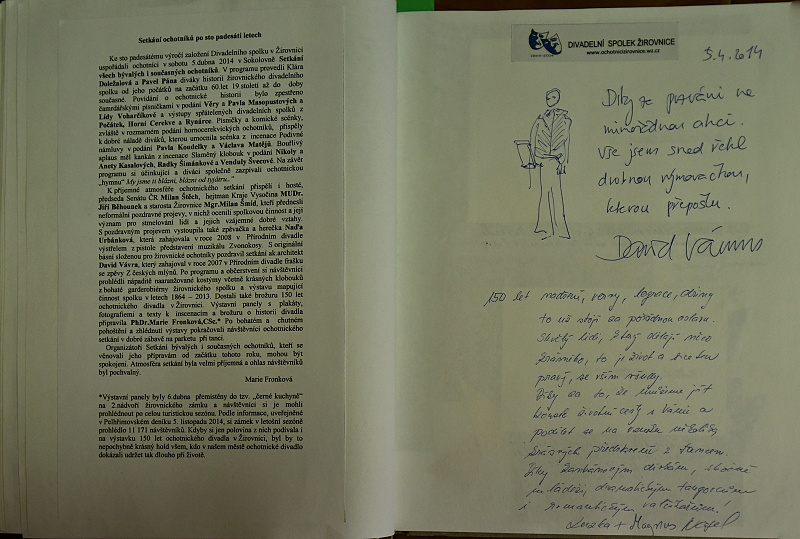 Setkání ochotníků po sto padesáti letech
Ke sto padesátému výročí založení Divadelního spolku v Žirovnici
uspořádali ochotníci v sobotu 5.dubna 2014 v Sokolovně Setkání
všech bývalých i současných ochotníků. V programu provedli Klára
Doležalová a Pavel Pána diváky historií žirovnického divadelního
spolku od jeho počátků na začátku 60.let 19.století až do doby
současné. Povídání o ochotnické historii bylo zpestřeno
čamrdářskými písničkami v podání Věry a Pavla Masopustových a
Lídy Voharčíkové a výstupy spřátelených divadelních spolků z
Počátek, Horní Cerekve a Rynárce. Písničky a komické scénky,
zvláště v rozmarném podání hornocerekvických ochotníků, přispěly
k dobré náladě diváků, kterou umocnila scénka z incenace Podivné
námluvy v podání Pavly Koudelky a Václava Matějů. Bouřlivý
aplaus měl kankán z incenace Slaměný klobouk v podání Nikoly a
Anety Kasalových, Radky Šimánkové a Venduly Švecové. Na závěr
programu si účinkující a diváci společně zazpívali ochotnickou
„hymnu" My jsme ti blázni, blázni od tyjátru.."
K příjemné atmosféře ochotnického setkání přispěli i hosté,
předseda Senátu ČR Milan Štěch, hejtman Kraje Vysočina MUDr.
Jiří Běhounek a starosta Žirovnice Mgr.Milan Šmíd, kteří přednesli
neformální pozdravné projevy, v nichž ocenili spolkovou činnost a její
význam pro stmelování lidí a jejich vzájemné dobré vztahy.
S pozdravným projevem vystoupila také zpěvačka a herečka Naďa
Urbánková, která zahajovala v roce 2008 v Přírodním divadle
výstřelem z pistole představení muzikálu Zvonokosy. S originální
básní složenou pro žirovnické ochotníky pozdravil setkání ak.architekt
David Vávra, který zahajoval v roce 2007 v Přírodním divadle frašku
se zpěvy Z českých mlýnů. Po programu a občerstvení si návštěvníci
prohlédli nápaditě naaranžované kostýmy včetně krásných klobouků
z bohaté garderobiérny žirovnického spolku a výstavu mapující
činnost spolku v letech 1864 – 2013. Dostali také brožuru 150 let
ochotnického divadla v Žirovnici. Výstavní panely s plakáty,
fotografiemi a texty k inscenacím a brožuru o historii divadla
připravila PhDr.Marie Fronková,CSc.* Po bohatém a chutném
pohoštění a zhlédnutí výstavy pokračovali návštěvníci ochotnického
setkání v dobré zábavě na parketu při tanci.
Organizátoři Setkání bývalých i současných ochotníků, kteří se
věnovali jeho přípravám od začátku tohoto roku, mohou být
spokojeni. Atmosféra setkání byla velmi příjemná a ohlas návštěvníků
byl pochvalný.
Marie Fronková
*Výstavní panely byly 6.dubna přemístěny do tzv. „černé kuchyně"
na 2.nádvoří žirovnického zámku a návštěvníci si je mohli
prohlédnout po celou turistickou sezónu. Podle informace, uveřejněné
v Pelhřimovském deníku 5. listopadu 2014, si zámek v letošní sezóně
prohlédlo 11 171 návštěvníků. Kdyby si jen polovina z nich podívala i
na výstavku 150 let ochotnického divadla v Žirovnici, byl by to
nepochybně krásný hold všem, kdo v našem městě ochotnické divadlo
dokázali udržet tak dlouho při životě.
DIVADELNÍ SPOLEK ŽIROVNICE
www.ochotnicizirovnice.wz.cz
5.4.2014
Díky za pozvání na
mimořádnou akci.
Vše jsem sned řekl
drobnou rýmovačkou,
kterou přepošlu.
David Vávra
150 let nadšení, legrace, dřiny
to už stojí za pořádnou oslavu.
Skvělý lidi, který dělají něco
krásného, to je život
pravý, se vším
Díky za to, že můžeme jít
životní cesty s Vámi a
podílet se na
krásných představení s tancem.
Díky
mládeži, dramatickým
i romantickým
Lenka + Magnus